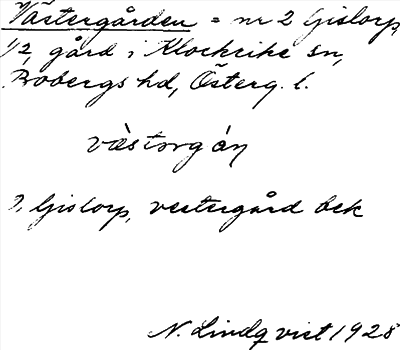 Västergården = nr 2 Gislorp,
1/2, gård i Klockrike sn,
Bobergs hd, Österg. l.
västorgán
Gislorp, vestergård bek
N. Lindqvist 1928